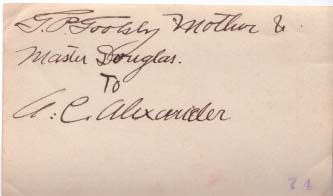 G. P. Goolsby Mother &
Master Douglas.
To
A. C. Alexander
24